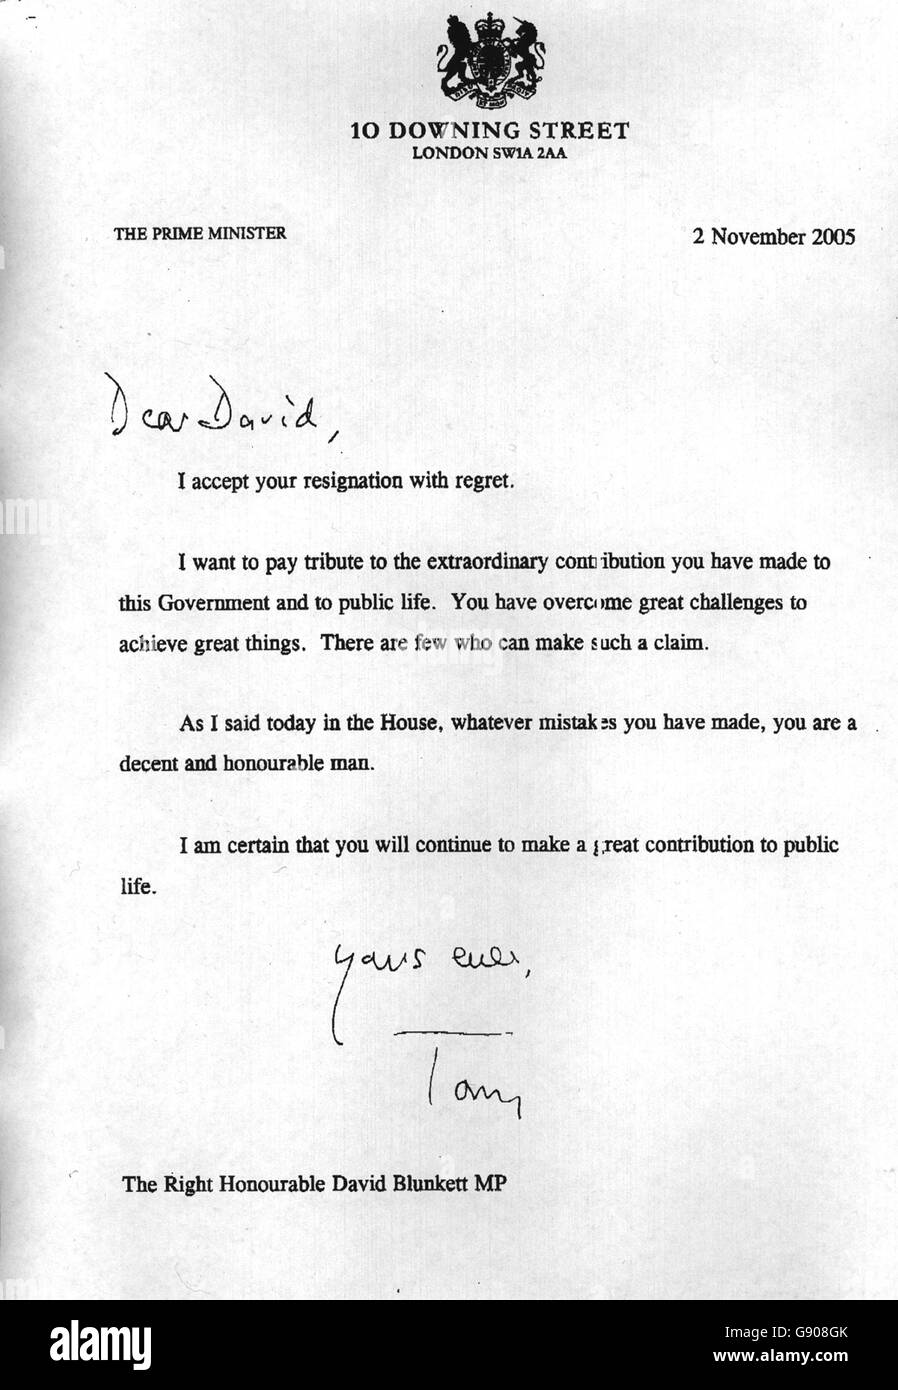 10 DOWNING STREET
LONDON SW1A 2AA
THE PRIME MINISTER
2 November 2005
Dear David,
I accept your resignation with regret.
I want to pay tribute to the extraordinary contribution you have made to
this Government and to public life. You have overcome great challenges to
achieve great things. There are few who can make such a claim.
As I said today in the House, whatever mistakes you have made, you are a
decent and honourable man.
I am certain that you will continue to make a great contribution to public
life.
Yours ever,
Tony
The Right Honourable David Blunkett MP
alamy
Image ID: G908GK
www.alamy.com